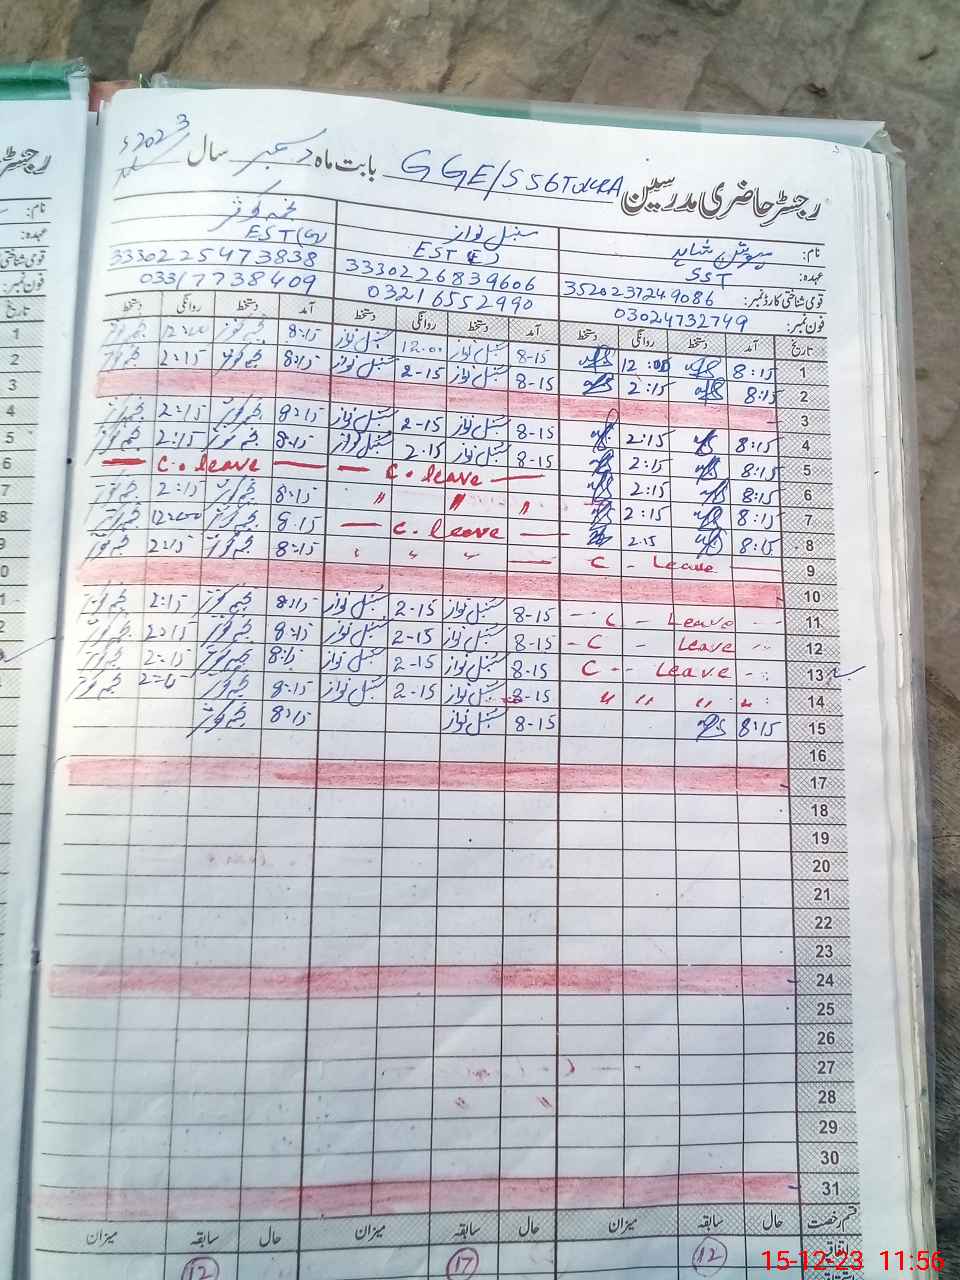 رجسٹر حاضری مدرسین GGE/S SGT بابت ماہ دسمبر سال 2023ء
نام: سنبل نواز نجمہ کوثر
عہدہ: SST EST (E) EST(G)
قومی شناختی کارڈ نمبر: 3520237249086 3330226839606 3330225473838
فون نمبر: 03024732749 03216552990 03317738409
تاریخ آمد دستخط روانگی دستخط آمد دستخط روانگی دستخط آمد دستخط روانگی دستخط
1 8:15 12:00 8-15 سنبل نواز 12.00 سنبل نواز 8:15 نجمہ کوثر 12:00 نجمہ کوثر
2 8:15 2:15 8-15 سنبل نواز 2-15 سنبل نواز 8:15 نجمہ کوثر 2:15 نجمہ کوثر
3
4 8:15 2:15 8-15 سنبل نواز 2-15 سنبل نواز 8:15 نجمہ کوثر 2:15 نجمہ کوثر
5 8:15 2:15 8-15 سنبل نواز 2.15 سنبل نواز 8:15 نجمہ کوثر 2:15 نجمہ کوثر
6 8:15 2:15 — C. leave — — C. leave —
7 8:15 2:15 〃 〃 〃 8:15 نجمہ کوثر 2:15 نجمہ کوثر
8 8:15 2.15 — C. leave — 8.15 نجمہ کوثر 12:00 نجمہ کوثر
9 C - Leave — — 〃 〃 〃 8:15 نجمہ کوثر 2:15 نجمہ کوثر
10
11 C - Leave 8-15 سنبل نواز 2-15 سنبل نواز 8:15 نجمہ کوثر 2:15 نجمہ کوثر
12 - C - Leave 8-15 سنبل نواز 2-15 سنبل نواز 8:15 نجمہ کوثر 2:15 نجمہ کوثر
13 C - Leave 8-15 سنبل نواز 2-15 سنبل نواز 8:15 نجمہ کوثر 2:15 نجمہ کوثر
14 〃 〃 〃 〃 8-15 سنبل نواز 2-15 سنبل نواز 8:15 نجمہ کوثر 2:15 نجمہ کوثر
15 8:15 8-15 سنبل نواز 8:15 نجمہ کوثر
16
17
18
19
20
21
22
23
24
25
26
27
28
29
30
31
قسم رخصت حال سابقہ میزان حال سابقہ میزان حال سابقہ میزان
اتفاقیہ 12 17 12
15-12-23 11:56